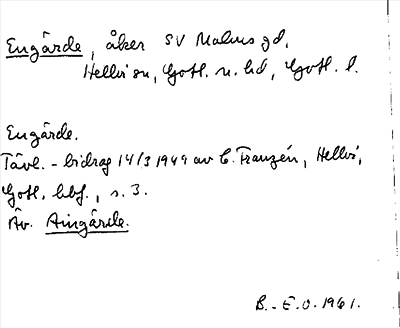 Engårde, åker SV Malms gd,
Hellvi sn, Gotl. n. hd, Gotl. l.
Engårde.
Tävl.-bidrag 14/3 1949 av C. Franzén, Hellvi,
Gotl. bbf., s. 3.
Äv. Aingårde.
B.-E.O. 1961.